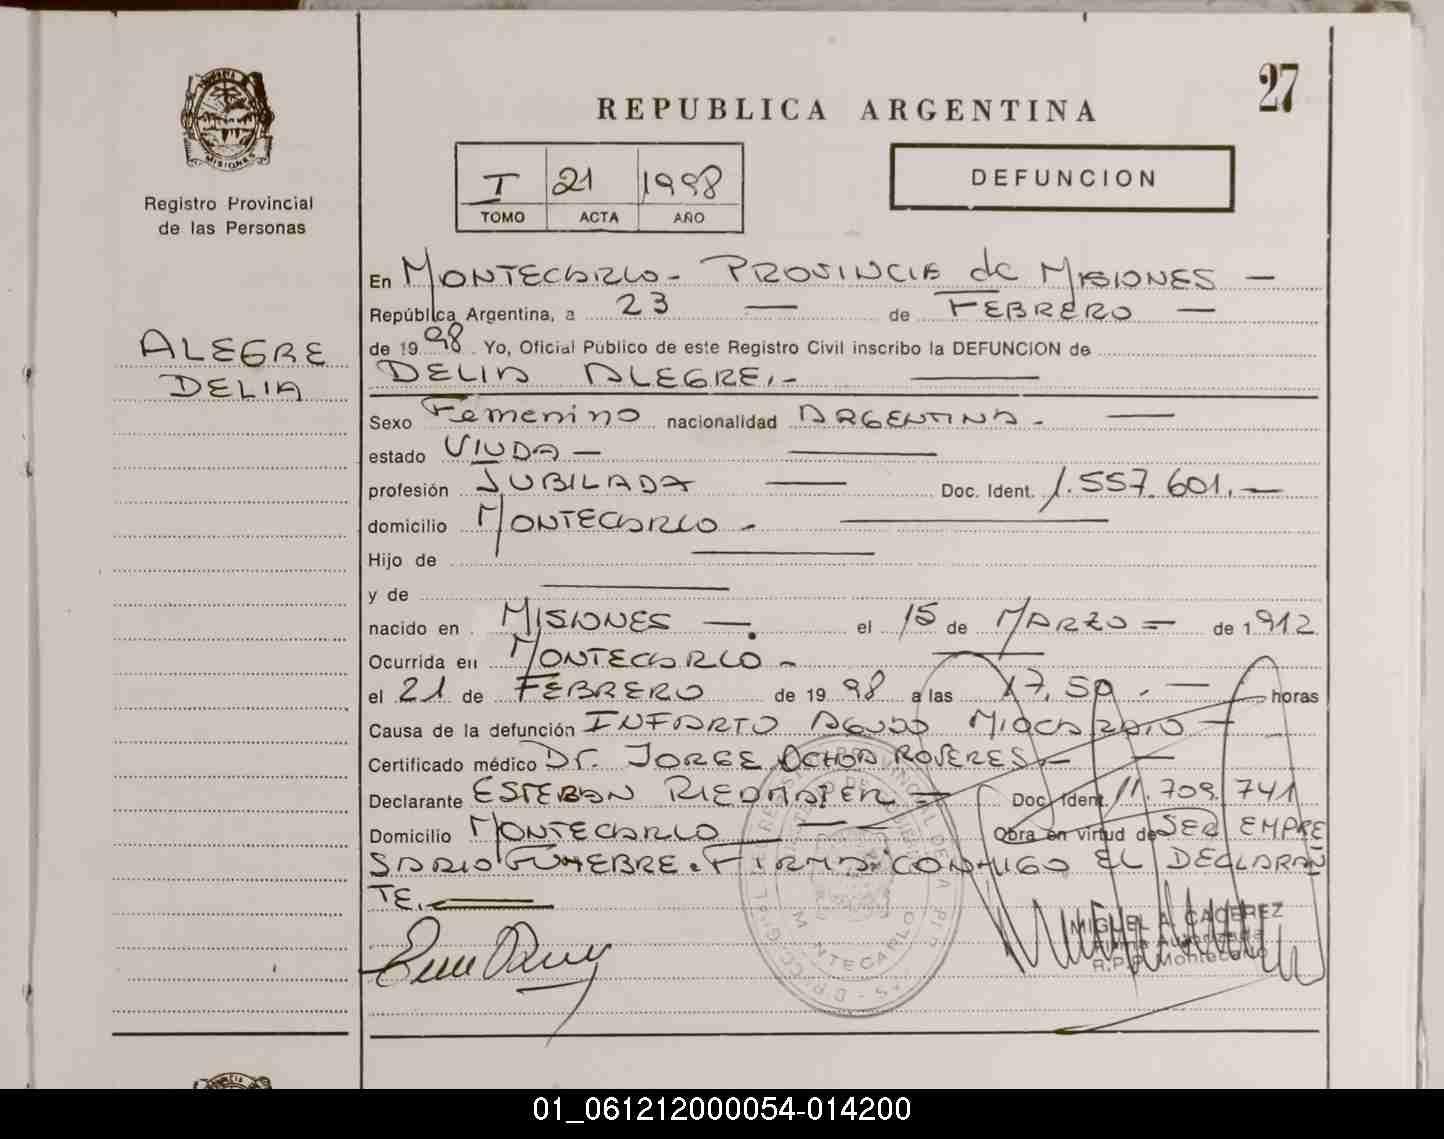 27
REPUBLICA ARGENTINA
MISIONES
Registro Provincial
de las Personas
I 21 1998
TOMO ACTA AÑO
DEFUNCION
ALEGRE
DELIA
En MONTECARLO - PROVINCIA de MISIONES —
República Argentina, a 23 — de FEBRERO —
de 1998. Yo, Oficial Público de este Registro Civil inscribo la DEFUNCION de
DELIA ALEGRE.- —
Sexo Femenino nacionalidad ARGENTINA. —
estado VIUDA — —
profesión JUBILADA — Doc. Ident. 1.557.601. —
domicilio MONTECARLO - —
Hijo de —
y de —
nacido en MISIONES —. el 15 de MARZO = de 1912
Ocurrida en MONTECARLO - —
el 21 de FEBRERO de 1998 a las 17,50. — horas
Causa de la defunción INFARTO AGUDO MIOCARDIO —
Certificado médico Dr. JORGE OCHOA ROVERES —
Declarante ESTEBAN = Doc. Ident. 11.709.741
Domicilio MONTECARLO — Obra en virtud de SER EMPRE
SARIO FUNEBRE. FIRMA CONMIGO EL DECLARAN
TE. =
MIGUEL A. CACEREZ
Firma Autorizada
R.P.P. Montecarlo
MONTECARLO
01_061212000054-014200